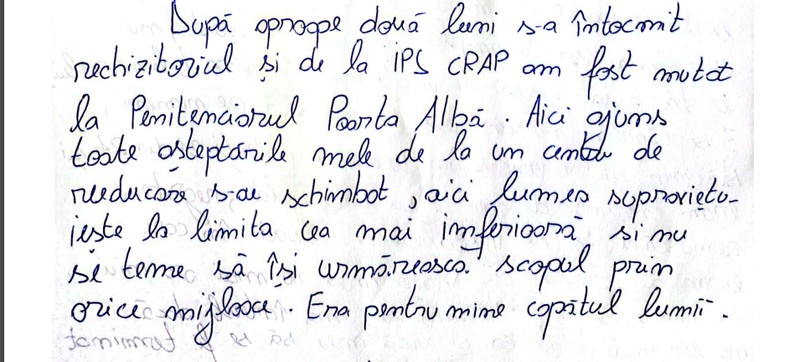 După aproape două luni s-a întocmit
rechizitoriul și de la IPS CRAP am fost mutat
la Penitenciarul Poarta Albă. Aici ajuns
toate așteptările mele de la un centru de
reeducare s-au schimbat, aici lumea supraviețu-
iește la limita cea mai inferioară și nu
se teme să își urmărească scopul prin
orice mijloace. Era pentru mine capătul lumii.